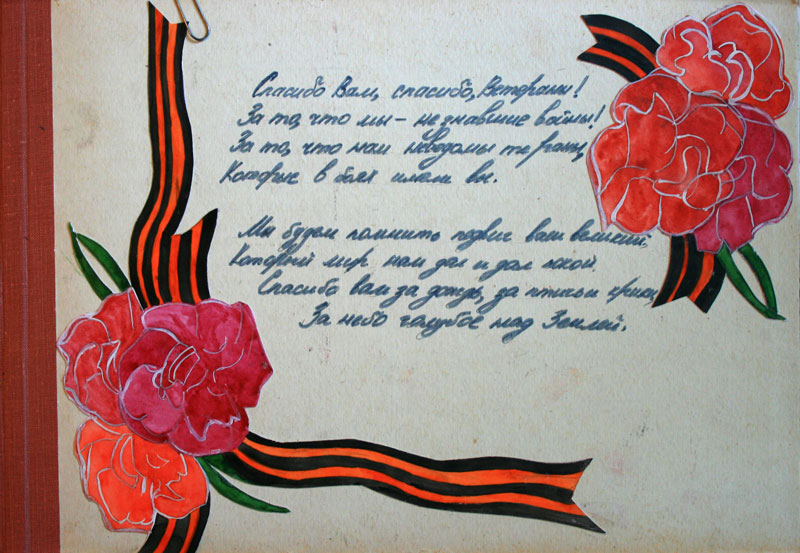 Спасибо Вам, спасибо, Ветераны!
За то, что мы - не знавшие войны!
За то, что нам неведомы те раны,
Которые в боях имели вы.
Мы будем помнить подвиг ваш великий,
Который мир нам дал и дал покой.
Спасибо вам за дождь, за птичьи крики,
За небо голубое над Землей.